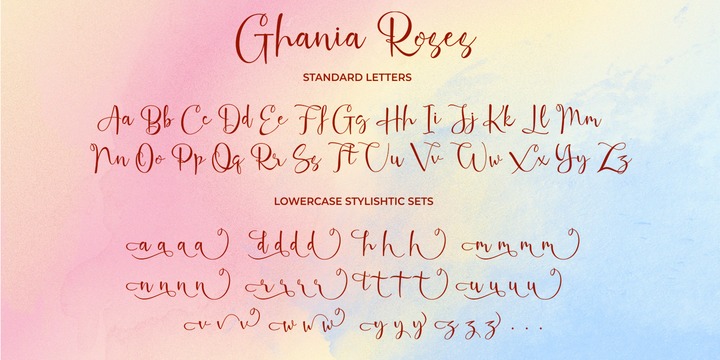 Ghania Roses
STANDARD LETTERS
Aa Bb Cc Dd Ee Ff Gg Hh Ii Jj Kk Ll Mm
Nn Oo Pp Qq Rr Ss Tt Uu Vv Ww Xx Yy Zz
LOWERCASE STYLISHTIC SETS
a a a a d d d d h h h m m m m
n n n n r r r r t t t t u u u u
v v v w w w y y y z z z . . .